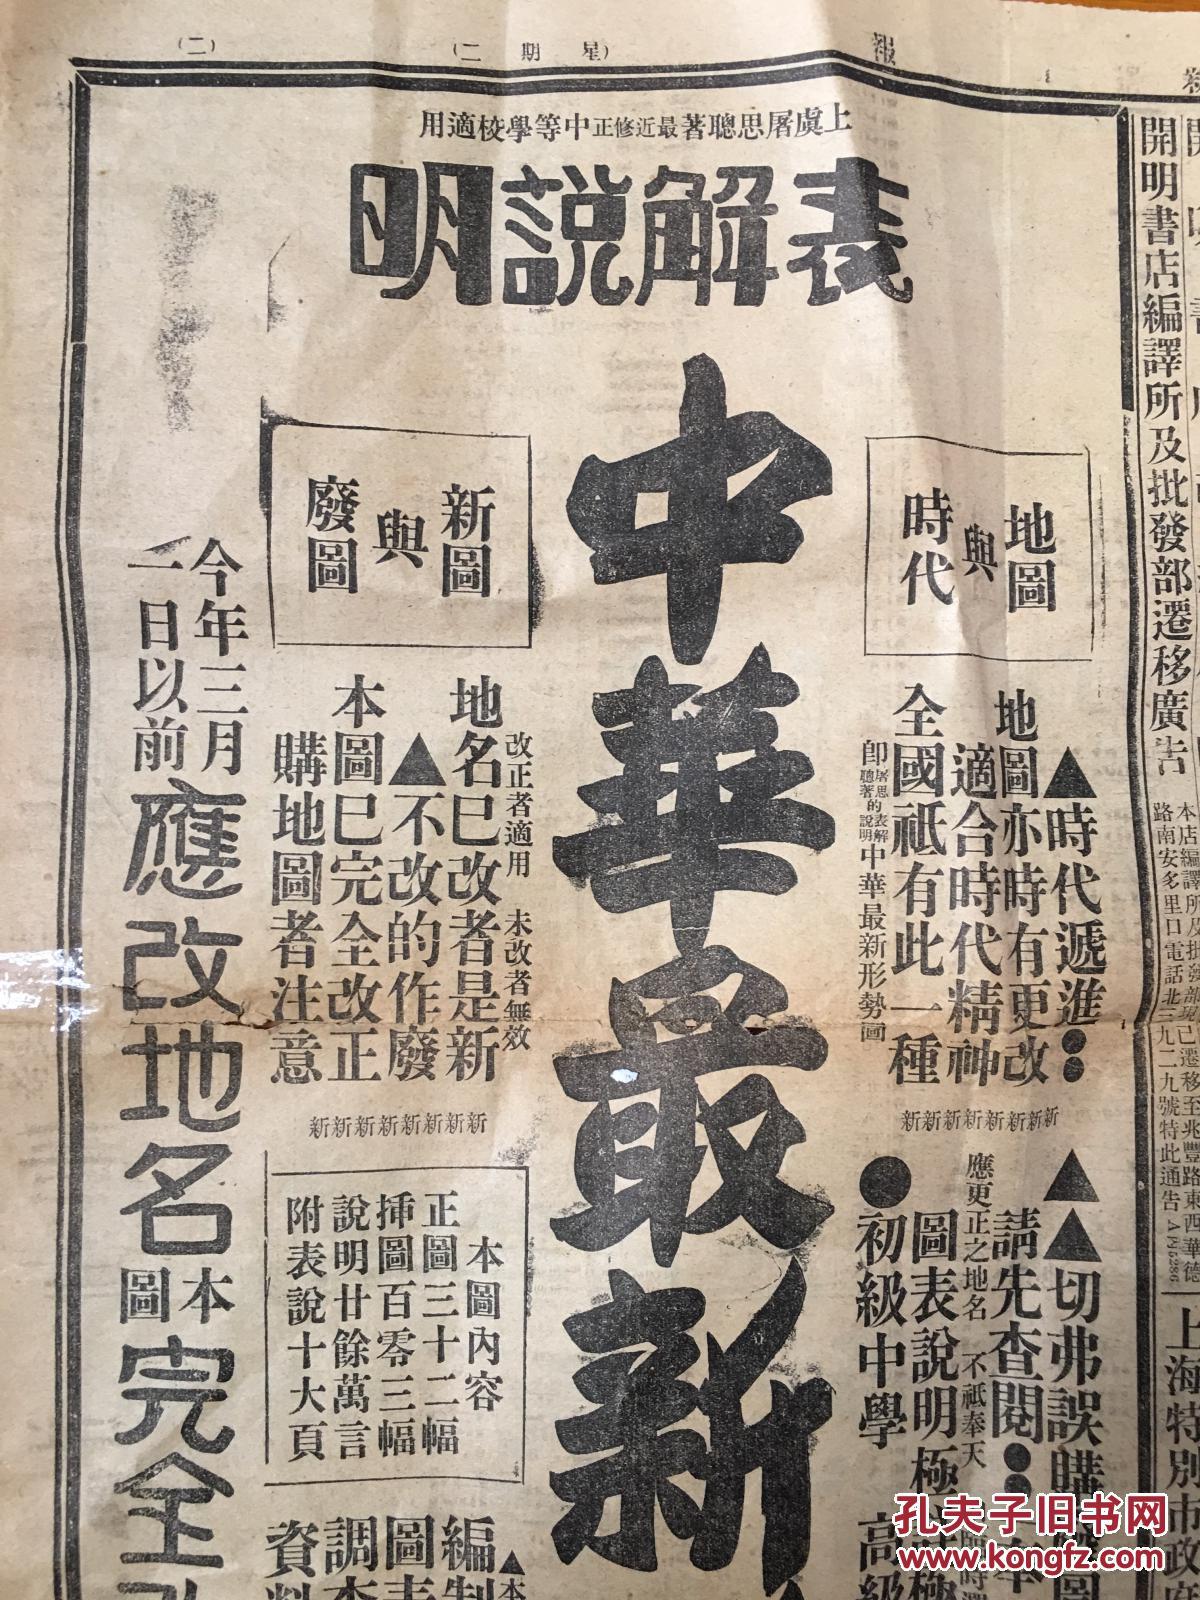 （星期二）
（二）
報
開明書店編譯所及批發部遷移廣告
本店編譯所及批發部已遷移至兆豐路東西華德
路南安多里口電話北三九二九號特此通告
上海特別市政府
上虞屠思聰著最近修正中等學校適用
表解說明
中華最新
地圖
與
時代
▲時代遞進●●
地圖亦時有更改
適合時代精神
全國祇有此一種
即屠思聰著的表解說明中華最新形勢圖
新新新新新新新新
▲▲切弗誤購
請先查閱●●
應更正之地名 不祇奉天
圖表說明極
●初級中學 高級
新圖
與
廢圖
改正者適用 未改者無效
地名已改者是新
▲不改的作廢
本圖已完全改正
購地圖者注意
新新新新新新新新
本圖內容
正圖三十二幅
插圖百零三幅
說明廿餘萬言
附表說十大頁
▲本
編制
圖表
調查
資料
今年三月
一日以前
應改地名
本圖
完全改
孔夫子旧书网
www.kongfz.com